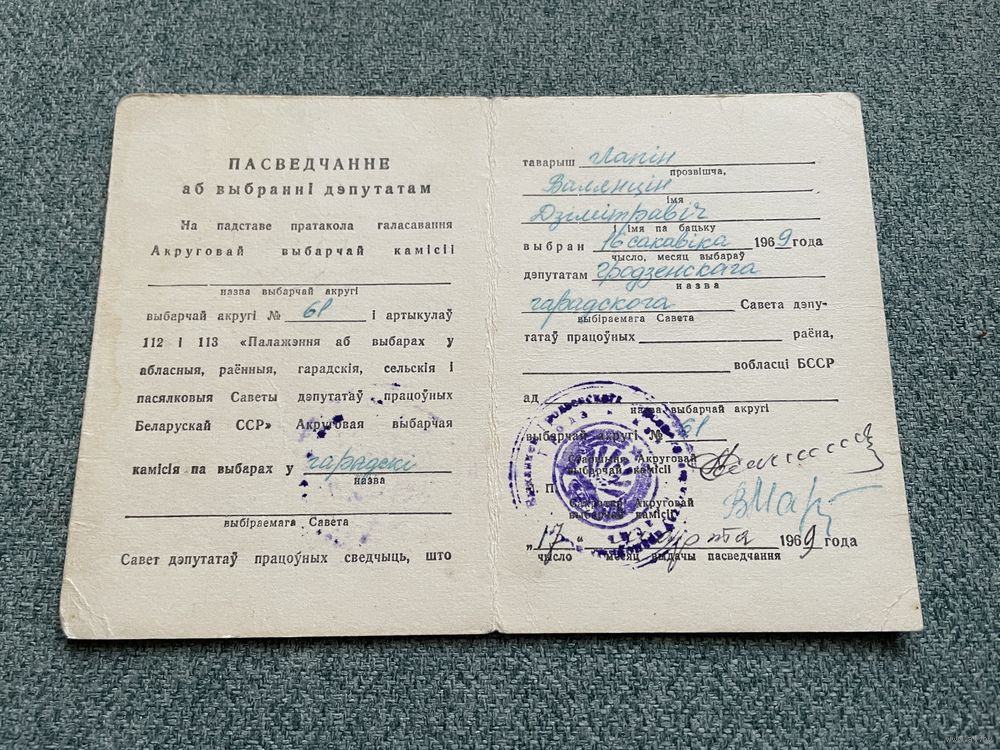 ПАСВЕДЧАННЕ
аб выбранні дэпутатам
На падставе пратакола галасавання
Акруговай выбарчай камісіі
назва выбарчай акругі
выбарчай акругі № 61 і артыкулаў
112 і 113 «Палажэння аб выбарах у
абласныя, раённыя, гарадскія, сельскія і
пасялковыя Саветы дэпутатаў працоўных
Беларускай ССР» Акруговая выбарчая
камісія па выбарах у гарадскі
назва
выбіраемага Савета
Савет дэпутатаў працоўных сведчыць, што
таварыш Лапін
прозвішча,
Валянцін
імя
Дзімітравіч
і імя па бацьку
выбран 16 сакавіка 1969 года
число, месяц выбараў
дэпутатам Гродзенскага
назва
гарадскога Савета дэпу-
выбіраемага Савета
татаў працоўных раёна,
вобласці БССР
ад
назва выбарчай акругі
выбарчай акругі № 61
Старшыня Акруговай
выбарчай камісіі
П
Сакратар Акруговай
выбарчай камісіі
„17“ марта 1969 года
число месяц выдачы пасведчання